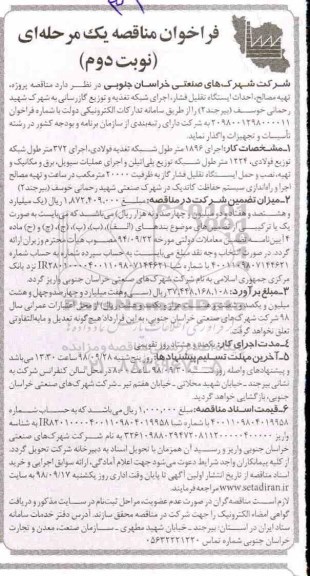 فراخوان مناقصه یک مرحله‌ای
(نوبت دوم)
شرکت شهرک‌های صنعتی خراسان جنوبی در نظر دارد مناقصه پروژه،
تهیه مصالح، احداث ایستگاه تقلیل فشار، اجرای شبکه تغذیه و توزیع گازرسانی به شهرک شهید
رحمانی خوسف (بیرجند۲) را از طریق سامانه تدارکات الکترونیکی دولت با شماره فراخوان
به شرکت دارای رتبه‌بندی از سازمان برنامه و بودجه کشور در رشته
تأسیسات و تجهیزات واگذار نماید.
۱ـ مشخصات کار: اجرای ۱۸۹۶ متر طول شبکه تغذیه فولادی، اجرای ۳۷۲ متر طول شبکه
توزیع فولادی، ۱۲۲۴ متر طول شبکه توزیع پلی‌اتیلن و اجرای عملیات سیویل، برق و مکانیک و
تهیه، نصب و حمل ایستگاه تقلیل فشار گاز به ظرفیت ۲۰۰۰۰ مترمکعب در ساعت و تهیه مصالح
اجرا و راه‌اندازی سیستم حفاظت کاتدیک در شهرک صنعتی شهید رحمانی خوسف (بیرجند۲)
۲ـ میزان تضمین شرکت در مناقصه: مبلغ ۱,۸۷۲,۴۰۹,۰۰۰ ریال (یک میلیارد
و هشتصد و هفتاد و دو میلیون و چهارصد و نه هزار ریال) می‌باشد که می‌بایست به صورت
یک یا ترکیبی از ضمانت‌های موضوع بندهای (الف)، (ب)، (پ)، (ج)، (چ) و (ح) ماده
۴ آیین‌نامه تضمین معاملات دولتی مورخه ۹۴/۰۹/۲۲ مصوب هیأت محترم وزیران ارائه
گردد. در صورت انتخاب وجه نقد مبلغ می‌بایست به حساب سپرده شماره
نزد بانک
مرکزی جمهوری اسلامی به نام شرکت شهرک‌های صنعتی خراسان جنوبی واریز گردد
۳ـ مبلغ برآورد: ۳۷,۴۴۸,۱۶۸,۱۰۸ ریال (سی و هفت میلیارد و چهارصد و چهل و هشت
میلیون و یکصد و شصت و هشت هزار و یکصد و هشت ریال) از محل اعتبارات عمرانی سال
۹۸ شرکت شهرک‌های صنعتی خراسان جنوبی، به این قرارداد هیچ‌گونه تعدیل و مابه‌التفاوتی
تعلق نخواهد گرفت.
۴ـ مدت اجرای کار: یکصد و هشتاد روز تقویمی
۵ـ آخرین مهلت تسلیم پیشنهادها: روز پنج‌شنبه ۹۸/۰۹/۲۸ ساعت ۱۳:۳۰ می‌باشد
و پیشنهادهای واصله روز شنبه ۹۸/۰۹/۳۰ ساعت ۰۸:۳۰ در محل سالن کنفرانس شرکت به
نشانی بیرجند ـ خیابان شهید محلاتی ـ خیابان هفتم تیر ـ شرکت شهرک‌های صنعتی خراسان
جنوبی، بازگشایی خواهد گردید.
۶ـ قیمت اسناد مناقصه: مبلغ ۱,۰۰۰,۰۰۰ ریال می‌باشد که به حساب شماره
به شناسه
واریز به نام شرکت شهرک‌های صنعتی
خراسان جنوبی واریز و رسید آن همزمان با تحویل اسناد به دبیرخانه شرکت تحویل گردد.
از کلیه پیمانکاران واجد شرایط دعوت می‌شود جهت اعلام آمادگی، ارائه سوابق اجرایی و خرید
اسناد مناقصه از تاریخ انتشار اولین آگهی تا پایان وقت اداری روز یکشنبه ۹۸/۰۹/۱۷ به سایت
www.setadiran.ir مراجعه فرمایند.
لازم است مناقصه‌گران در صورت عدم عضویت، مراحل ثبت‌نام در سایت مذکور و دریافت
گواهی امضاء الکترونیک را جهت شرکت در مناقصه محقق سازند. آدرس دفتر خدمات سامانه
ستاد ایران در استان: بیرجند ـ خیابان شهید مطهری ـ سازمان صنعت، معدن و تجارت
خراسان جنوبی شماره تماس ۰۵۶۳۲۲۲۱۲۲۰